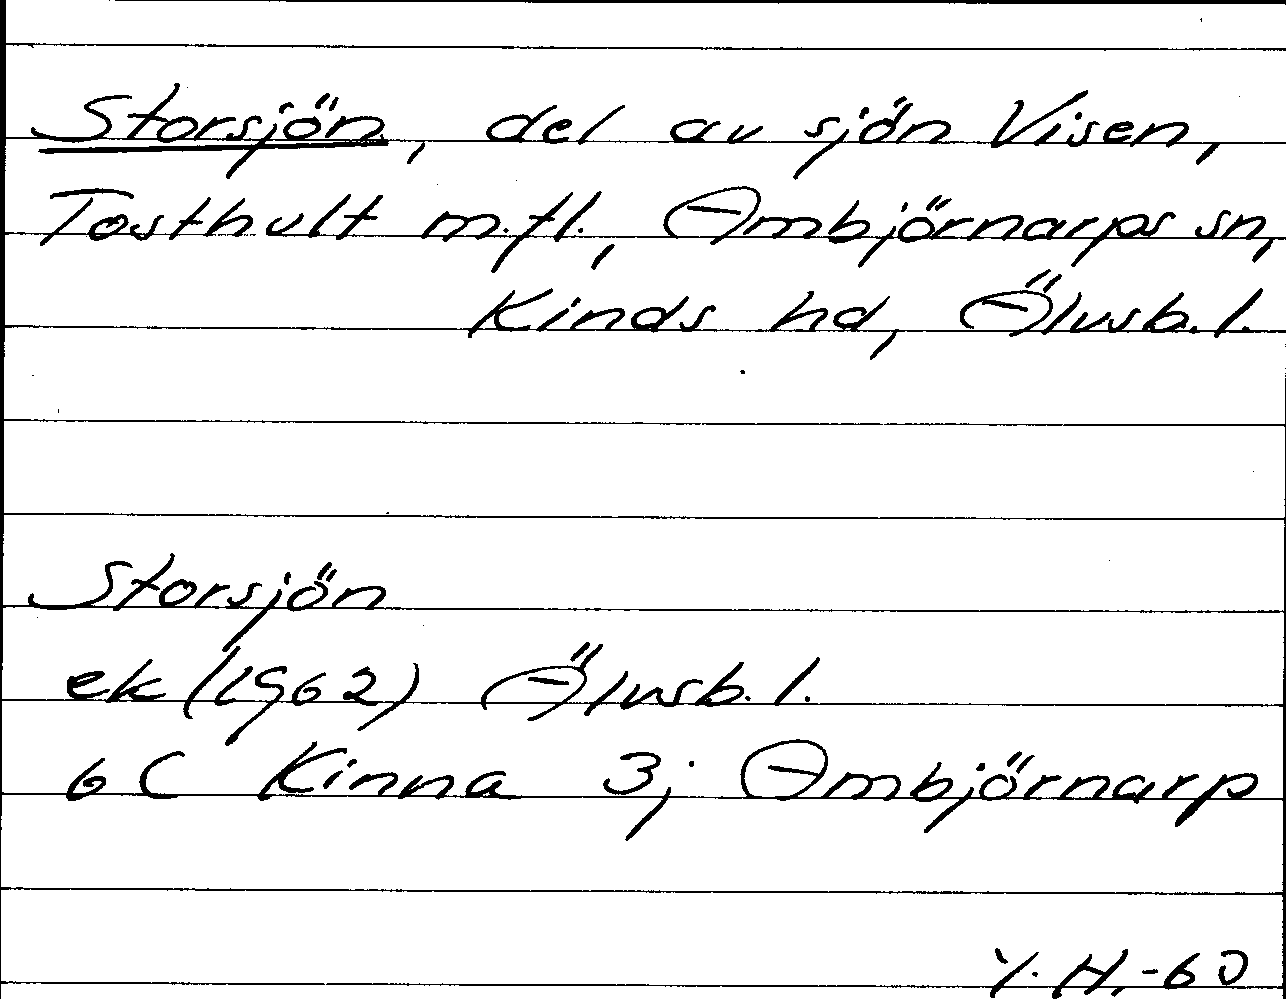 Storsjön, del av sjön Visen,
Tosthult m.fl., Ambjörnarps sn,
Kinds hd, Älvsb. l.
Storsjön
ek (1962) Älvsb. l.
6 C Kinna 3j Ambjörnarp
Y. H. -60